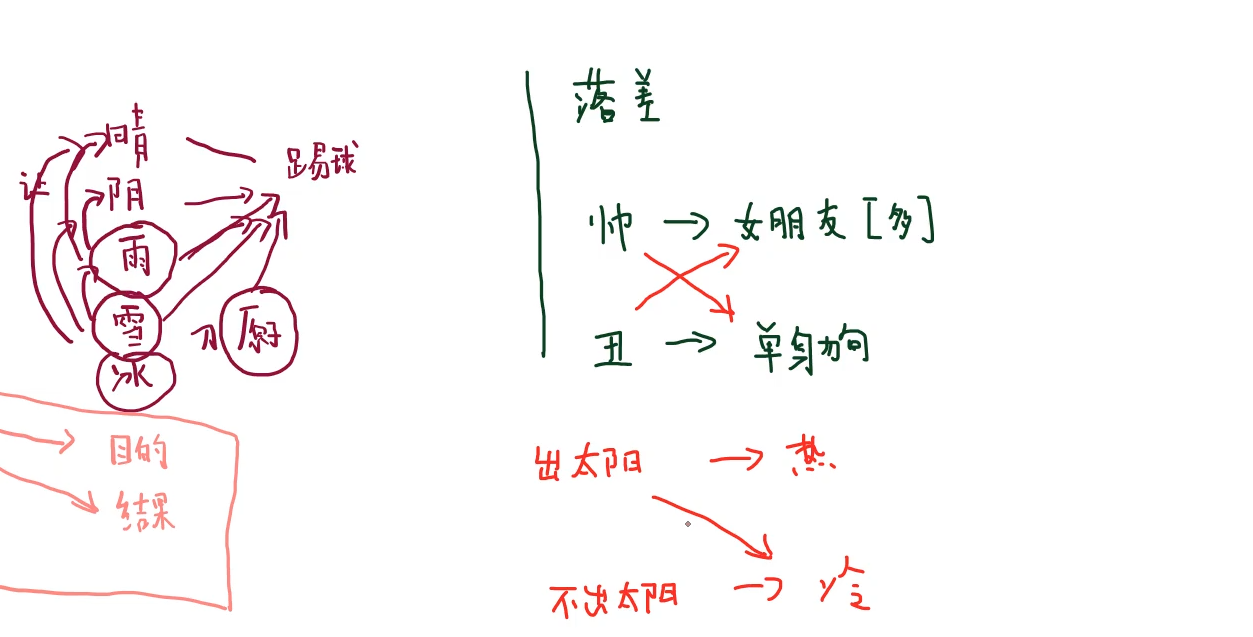 晴 踢球
让 阴
雨
雪
冰
目的
结果
落差
帅 → 女朋友 [多]
丑 → 单身狗
出太阳 → 热
不出太阳 → 冷